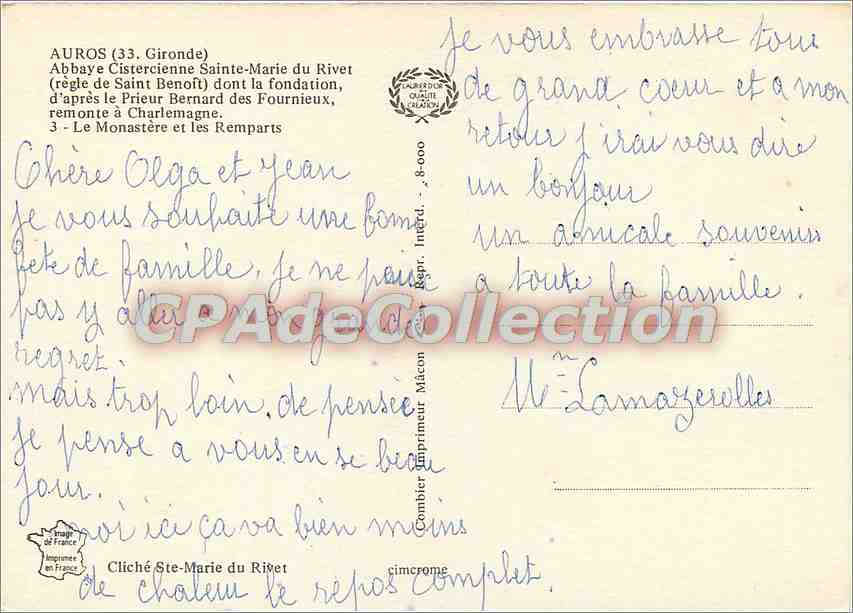 AUROS (33. Gironde)
Abbaye Cistercienne Sainte-Marie du Rivet
(règle de Saint Benoît) dont la fondation,
d'après le Prieur Bernard des Fournieux,
remonte à Charlemagne.
3 - Le Monastère et les Remparts
LAURIER D'OR
DE LA
QUALITÉ
CRÉATION
Chère Olga et Jean
je vous souhaite une bonne
fête de famille, je ne puis
pas y aller a mon grand
regret.
mais trop loin. de pensée
je pense a vous en se beau
jour.
moi ici ça va bien moins
de chaleur le repos complet.
je vous embrasse tous
de grand coeur et a mon
retour j'irai vous dire
un bonjour
un amicale souvenirs
a toute la famille.
Mn Lamazerolles
CPAdeCollection
Combier Imprimeur Mâcon Repr. Interd. - 8-000
Image
de France
Imprimée
en France
Cliché Ste-Marie du Rivet
cimcrome